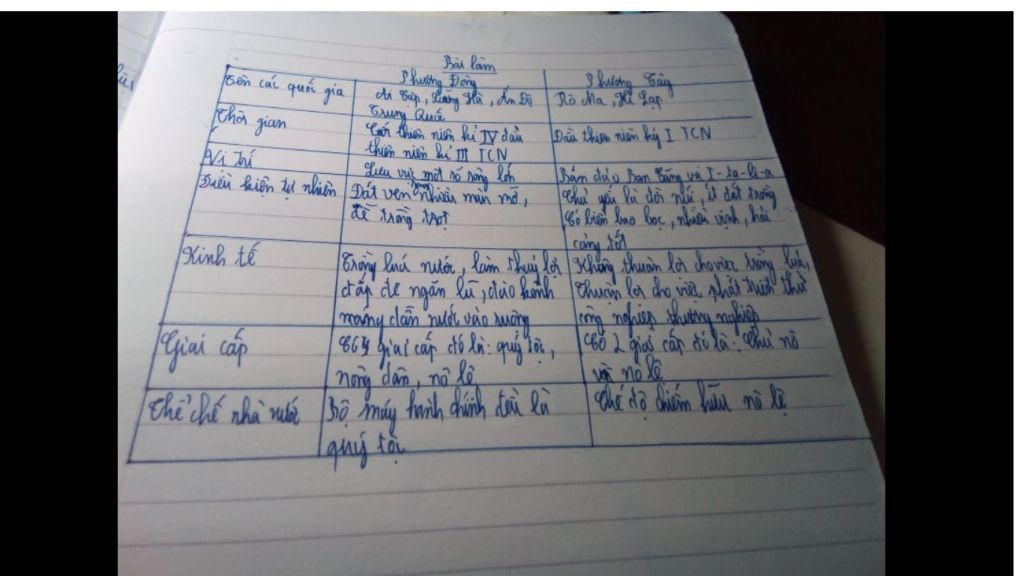 Bài làm
Phương Đông
Phương Tây
Tên các quốc gia
Ai Cập, Lưỡng Hà, Ấn Độ
Trung Quốc
Rô Ma, Hi Lạp
Thời gian
Cuối thiên niên kỉ IV đầu
thiên niên kỉ III TCN
Đầu thiên niên kỷ I TCN
Vị trí
Lưu vực một số sông lớn
Bán đảo Ban Căng và I-ta-li-a
Điều kiện tự nhiên
Đất ven sông nhiều màu mỡ,
dễ trồng trọt
Chủ yếu là đồi núi, ít đất trồng
Có biển bao bọc, nhiều vịnh, hải
cảng tốt
Kinh tế
Trồng lúa nước, làm thuỷ lợi
đắp đê ngăn lũ, đào kênh
máng dẫn nước vào ruộng
Không thuận lợi cho việc trồng lúa,
thuận lợi cho việc phát triển thủ
công nghiệp, thương nghiệp
Giai cấp
giai cấp đó là: quý tộc,
nông dân, nô lệ
Có 2 giai cấp đó là: Chủ nô
và nô lệ
Thể chế nhà nước
Bộ máy hành chính đều là
quý tộc
Chế độ chiếm hữu nô lệ